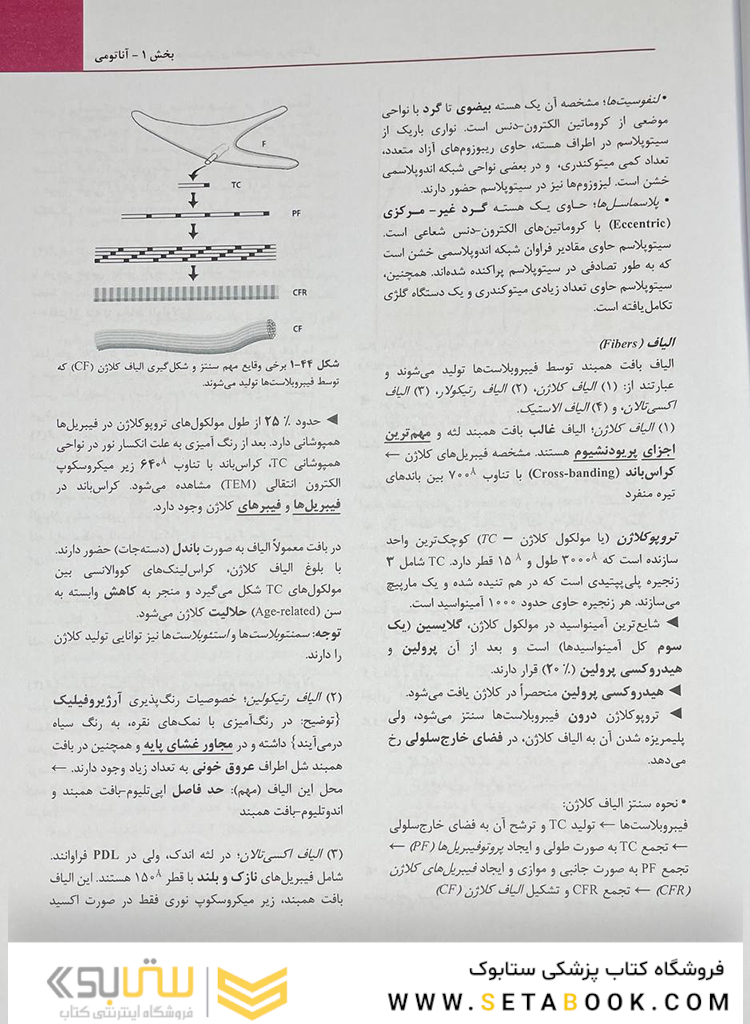 بخش ۱ - آناتومی
• لنفوسیت‌ها؛ مشخصه آن یک هسته بیضوی تا گرد با نواحی
موضعی از کروماتین الکترون-دنس است. نواری باریک از
سیتوپلاسم در اطراف هسته، حاوی ریبوزوم‌های آزاد متعدد،
تعداد کمی میتوکندری، و در بعضی نواحی شبکه اندوپلاسمی
خشن است. لیزوزوم‌ها نیز در سیتوپلاسم حضور دارند.
• پلاسماسل‌ها؛ حاوی یک هسته گرد غیر- مرکزی
(Eccentric) با کروماتین‌های الکترون-دنس شعاعی است.
سیتوپلاسم حاوی مقادیر فراوان شبکه اندوپلاسمی خشن است
که به طور تصادفی در سیتوپلاسم پراکنده شده‌اند. همچنین،
سیتوپلاسم حاوی تعداد زیادی میتوکندری و یک دستگاه گلژی
تکامل‌یافته است.
الیاف (Fibers)
الیاف بافت همبند توسط فیبروبلاست‌ها تولید می‌شوند و
عبارتند از: (۱) الیاف کلاژن، (۲) الیاف رتیکولار، (۳) الیاف
اکسی‌تالان، و (۴) الیاف الاستیک.
(۱) الیاف کلاژن؛ الیاف غالب بافت همبند لثه و مهم‌ترین
اجزای پریودنشیوم هستند. مشخصه فیبریل‌های کلاژن ←
کراس‌باند (Cross-banding) با تناوب ۷۰۰Å بین باندهای
تیره منفرد
تروپوکلاژن (یا مولکول کلاژن – TC) کوچک‌ترین واحد
سازنده است که ۳۰۰۰Å طول و ۱۵ Å قطر دارد. TC شامل ۳
زنجیره پلی‌پپتیدی است که در هم تنیده شده و یک مارپیچ
می‌سازند. هر زنجیره حاوی حدود ۱۰۰۰ آمینواسید است.
◄ شایع‌ترین آمینواسید در مولکول کلاژن، گلایسین (یک
سوم کل آمینواسیدها) است و بعد از آن پرولین و
هیدروکسی پرولین (۲۰٪) قرار دارند.
◄ هیدروکسی پرولین منحصراً در کلاژن یافت می‌شود.
◄ تروپوکلاژن درون فیبروبلاست‌ها سنتز می‌شود، ولی
پلیمریزه شدن آن به الیاف کلاژن، در فضای خارج‌سلولی رخ
می‌دهد.
• نحوه سنتز الیاف کلاژن:
فیبروبلاست‌ها ← تولید TC و ترشح آن به فضای خارج‌سلولی
← تجمع TC به صورت طولی و ایجاد پروتوفیبریل‌ها (PF) ←
تجمع PF به صورت جانبی و موازی و ایجاد فیبریل‌های کلاژن
(CFR) ← تجمع CFR و تشکیل الیاف کلاژن (CF)
F
TC
PF
CFR
CF
شکل ۴۴-۱ برخی وقایع مهم سنتز و شکل‌گیری الیاف کلاژن (CF) که
توسط فیبروبلاست‌ها تولید می‌شوند.
◄ حدود ۲۵ ٪ از طول مولکول‌های تروپوکلاژن در فیبریل‌ها
همپوشانی دارد. بعد از رنگ آمیزی به علت انکسار نور در نواحی
همپوشانی TC، کراس‌باند با تناوب ۶۴۰Å زیر میکروسکوپ
الکترون انتقالی (TEM) مشاهده می‌شود. کراس‌باند در
فیبریل‌ها و فیبرهای کلاژن وجود دارد.
در بافت معمولاً الیاف به صورت باندل (دسته‌جات) حضور دارند.
با بلوغ الیاف کلاژن، کراس‌لینک‌های کووالانسی بین
مولکول‌های TC شکل می‌گیرد و منجر به کاهش وابسته به
سن (Age-related) حلالیت کلاژن می‌شود.
توجه: سمنتوبلاست‌ها و استئوبلاست‌ها نیز توانایی تولید کلاژن
را دارند.
(۲) الیاف رتیکولین؛ خصوصیات رنگ‌پذیری آرژیروفیلیک
{توضیح: در رنگ‌آمیزی با نمک‌های نقره، به رنگ سیاه
درمی‌آیند} داشته و در مجاور غشای پایه و همچنین در بافت
همبند شل اطراف عروق خونی به تعداد زیاد وجود دارند. ←
محل این الیاف (مهم): حد فاصل اپی‌تلیوم-بافت همبند و
اندوتلیوم-بافت همبند
(۳) الیاف اکسی‌تالان؛ در لثه اندک، ولی در PDL فراوانند.
شامل فیبریل‌های نازک و بلند با قطر ۱۵۰Å هستند. این الیاف
بافت همبند، زیر میکروسکوپ نوری فقط در صورت اکسید
ستابوک
فروشگاه اینترنتی کتاب
فروشگاه کتاب پزشکی ستابوک
WWW.SETABOOK.COM